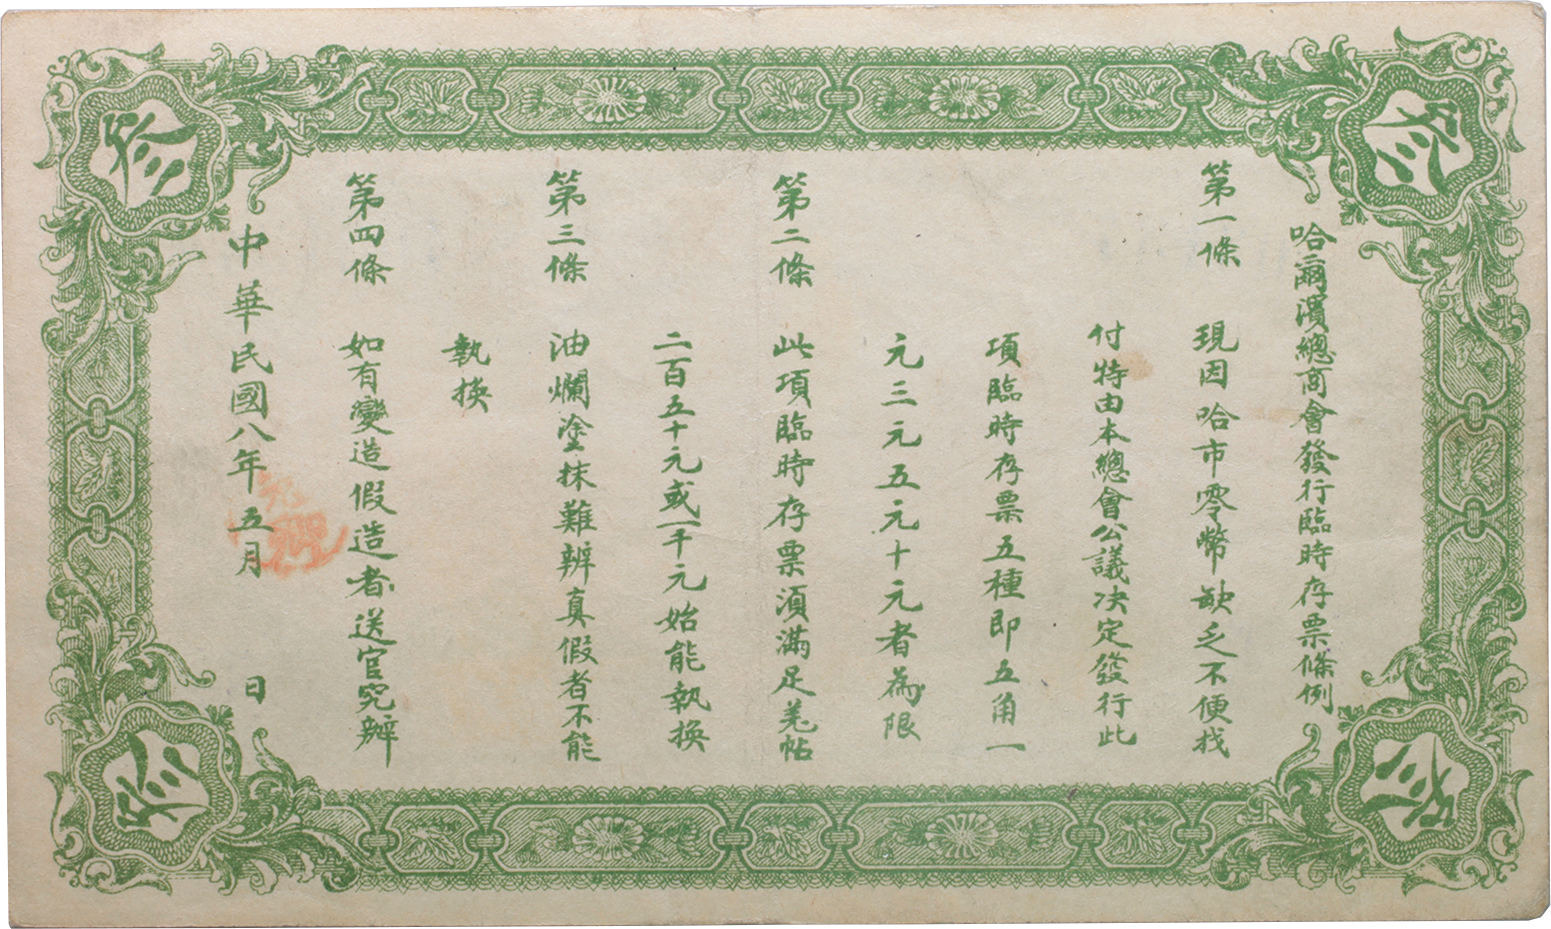 叁
叁
哈爾濱總商會發行臨時存票條例
第一條 現因哈市零幣缺乏不便找
付特由本總會公議决定發行此
項臨時存票五種即五角一
元三元五元十元者為限
第二條 此項臨時存票須滿足羌帖
二百五十元或一千元始能執換
第三條 油爛塗抹難辨真假者不能
執換
第四條 如有變造假造者送官究辦
中華民國八年五月 日
叁
叁